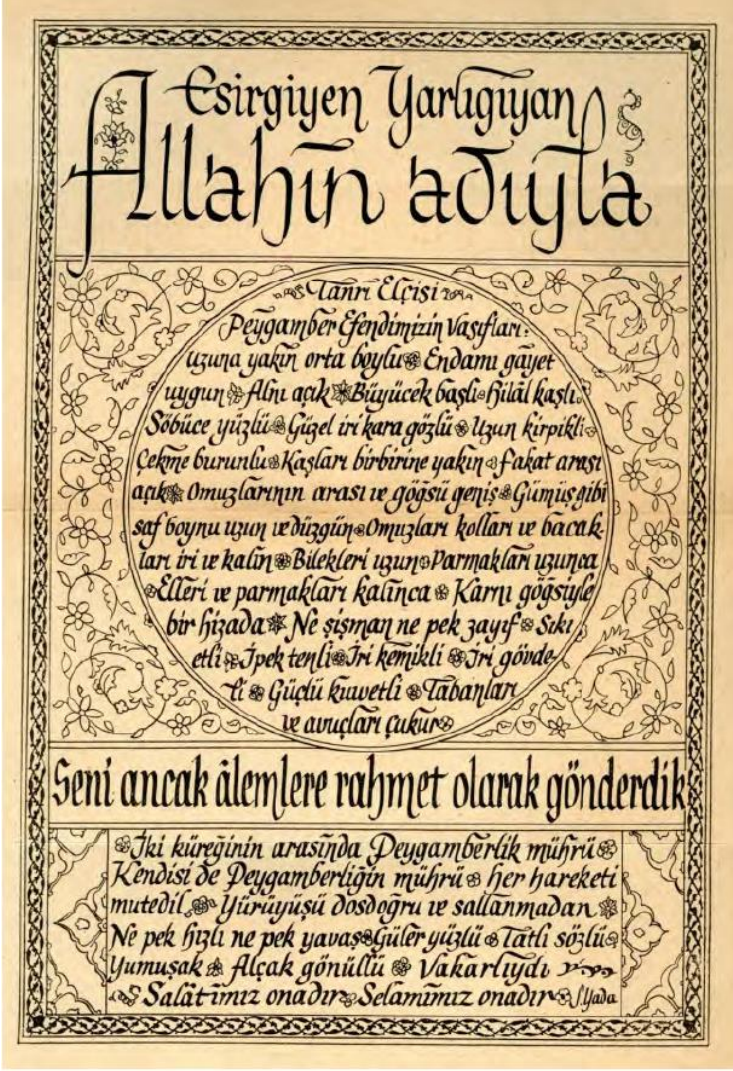 Esirgiyen Yarlıgıyan
Allahın adıyla
Tanrı Elçisi
Peygamber Efendimizin Vasıfları:
uzuna yakın orta boylu Endamı gayet
uygun Alnı açık Büyücek başlı Hilâl kaşlı
Söbüce yüzlü Güzel iri kara gözlü Uzun kirpikli
Çekme burunlu Kaşları birbirine yakın fakat arası
açık Omuzlarının arası ve göğsü geniş Gümüş gibi
saf boynu uzun ve düzgün Omuzları kolları ve bacak-
ları iri ve kalın Bilekleri uzun Parmakları uzunca
Elleri ve parmakları kalınca Karnı göğsiyle
bir hizada Ne şişman ne pek zayıf Sıkı
etli İpek tenli İri kemikli İri gövde-
li Güçlü kuvvetli Tabanları
ve avuçları çukur
Seni ancak âlemlere rahmet olarak gönderdik
İki küreğinin arasında Peygamberlik mührü
Kendisi de Peygamberliğin mührü her hareketi
mutedil Yürüyüşü dosdoğru ve sallanmadan
Ne pek hızlı ne pek yavaş Güler yüzlü Tatlı sözlü
Yumuşak Alçak gönüllü Vakarlıydı
Salâtımız onadır Selamımız onadır S.Yada